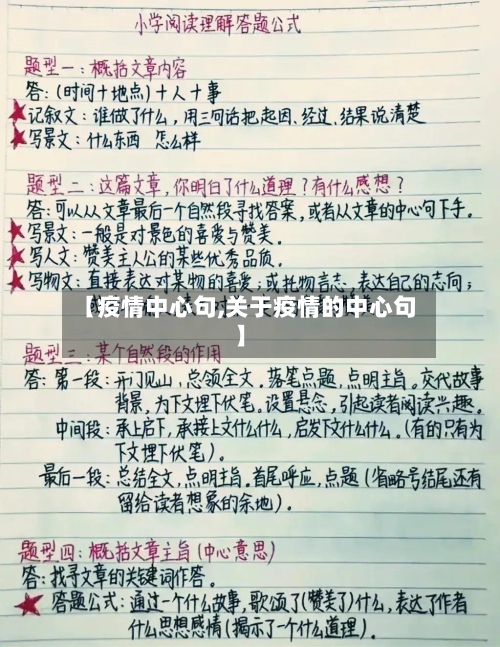 小学阅读理解答题公式
题型一：概括文章内容
答：(时间＋地点)＋人＋事
★记叙文：谁做了什么，用三句话把起因、经过、结果说清楚
★写景文：什么东西 怎么样
题型二：这篇文章，你明白了什么道理？有什么感想？
答：可以从从文章最后一个自然段寻找答案，或者从文章的中心句下手。
★写景文：一般是对景色的喜爱与赞美。
★写人文：赞美主人公的某些优秀品质。
★写物文：直接表达对某物的喜爱；或托物言志，表达自己的志向；
【疫情中心句,关于疫情的中心句
】
题型三：某个自然段的作用
答：第一段：开门见山，总领全文。落笔点题，点明主旨。交代故事
背景，为下文埋下伏笔。设置悬念，引起读者阅读兴趣。
中间段：承上启下，承接上文什么什么，启发下文什么什么。(有的只有为
下文埋下伏笔)。
最后一段：总结全文，点明主旨。首尾呼应，点题(省略号结尾还有
留给读者想象的余地)。
题型四：概括文章主旨(中心意思)
答：找寻文章的关键词作答。
★答题公式：通过一个什么故事，歌颂了(赞美了)什么，表达了作者
什么思想感情(揭示了一个什么道理)。